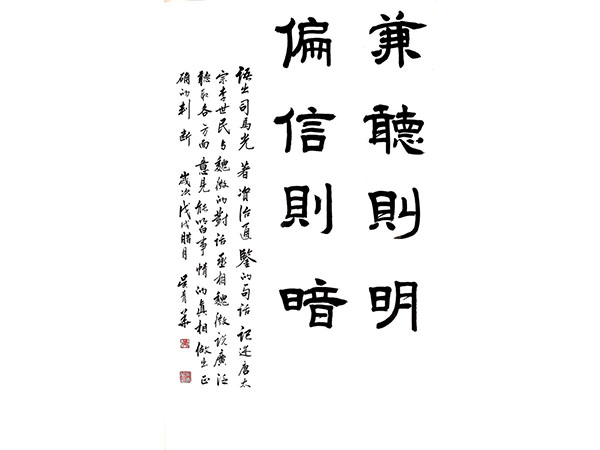 兼聽則明
偏信則暗
語出司馬光著資治通鑒的句話記述唐太
宗李世民与魏徵的對話丞相魏徵説廣泛
聽取各方面意見能明白事情的真相做出正
確的判斷 歲次戊戌腊月